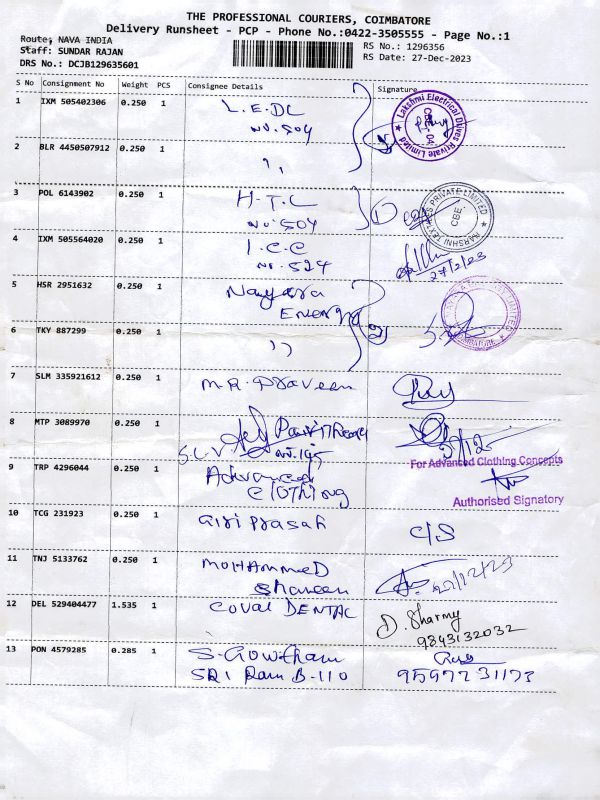 THE PROFESSIONAL COURIERS, COIMBATORE
Delivery Runsheet - PCP - Phone No.:0422-3505555 - Page No.:1
Route: NAVA INDIA
Staff: SUNDAR RAJAN
DRS No.: DCJB129635601
RS No.: 1296356
RS Date: 27-Dec-2023
S No Consignment No Weight PCS Consignee Details Signature
1 IXM 505402306 0.250 1 L.E.DL
NO. 504
Lakshmi Electrical Drives Private Limited
2 BLR 4450507912 0.250 1 ,,
3 POL 6143902 0.250 1 H.T.C
NO: 504
PRIVATE LIMITED
CBE.
4 IXM 505564020 0.250 1 I.C.C
NO. 524
5 HSR 2951632 0.250 1 Nayara
Energy
LIMITED
COIMBATORE
6 TKY 887299 0.250 1 ,,
7 SLM 335921612 0.250 1 M.R. Praveen
8 MTP 3089970 0.250 1
S.L.V NO. 195
9 TRP 4296044 0.250 1 Advanced
Clothing
For Advanced Clothing Concepts
Authorised Signatory
10 TCG 231923 0.250 1 Giri Prasah C/S
11 TNJ 5133762 0.250 1 MOHAMMED
Shareen
12 DEL 529404477 1.535 1 COVAI DENTAL D. Sharmy
9843132032
13 PON 4579285 0.285 1 S. Gowtham
SRI Ram B-110 9597731173